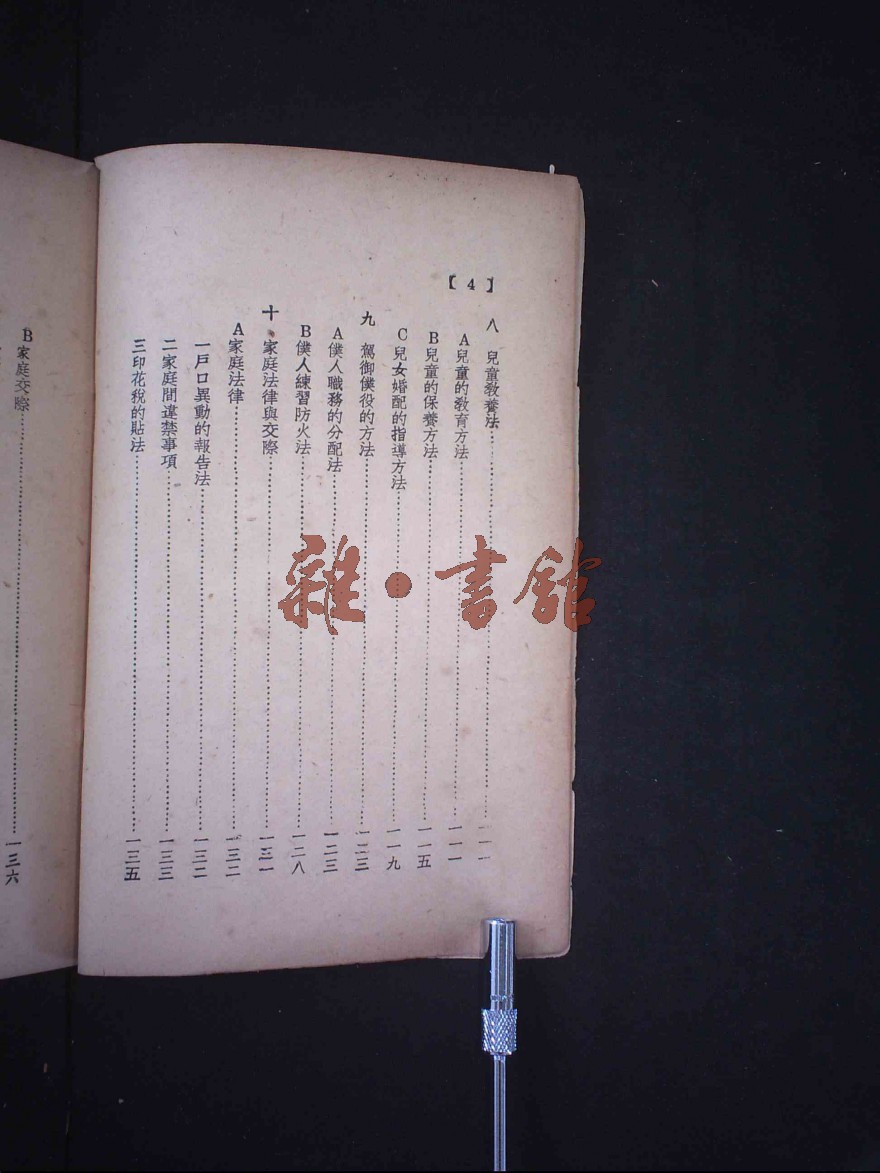 【4】
八 兒童敎養法……一一一
A兒童的敎育方法……一一一
B兒童的保養方法……一一五
C兒女婚配的指導方法……一一九
九 駕御僕役的方法……一二三
A僕人職務的分配法……一二三
B僕人練習防火法……一二八
十、家庭法律與交際……一三一
A家庭法律……一三二
一戶口異動的報告法……一三二
二家庭間違禁事項……一三三
三印花稅的貼法……一三五
B家庭交際……一三六
雜·書館